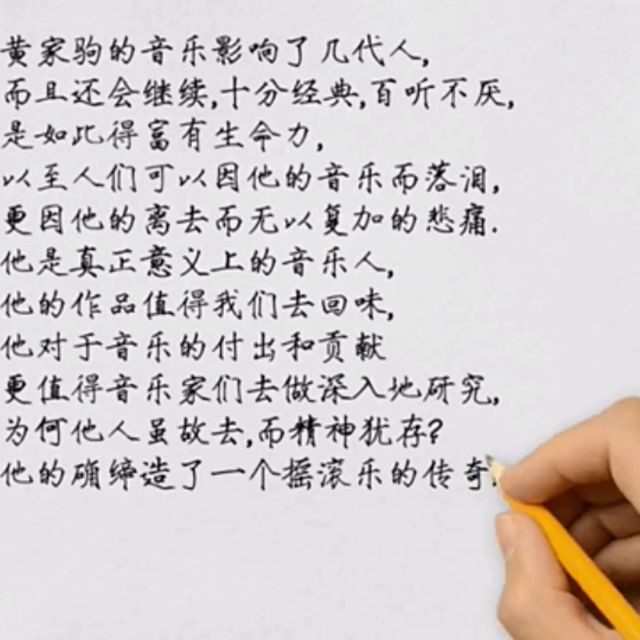 黄家驹的音乐影响了几代人,
而且还会继续,十分经典,百听不厌,
是如此得富有生命力,
以至人们可以因他的音乐而落泪,
更因他的离去而无以复加的悲痛.
他是真正意义上的音乐人,
他的作品值得我们去回味,
他对于音乐的付出和贡献
更值得音乐家们去做深入地研究,
为何他人虽故去,而精神犹存?
他的确缔造了一个摇滚乐的传奇